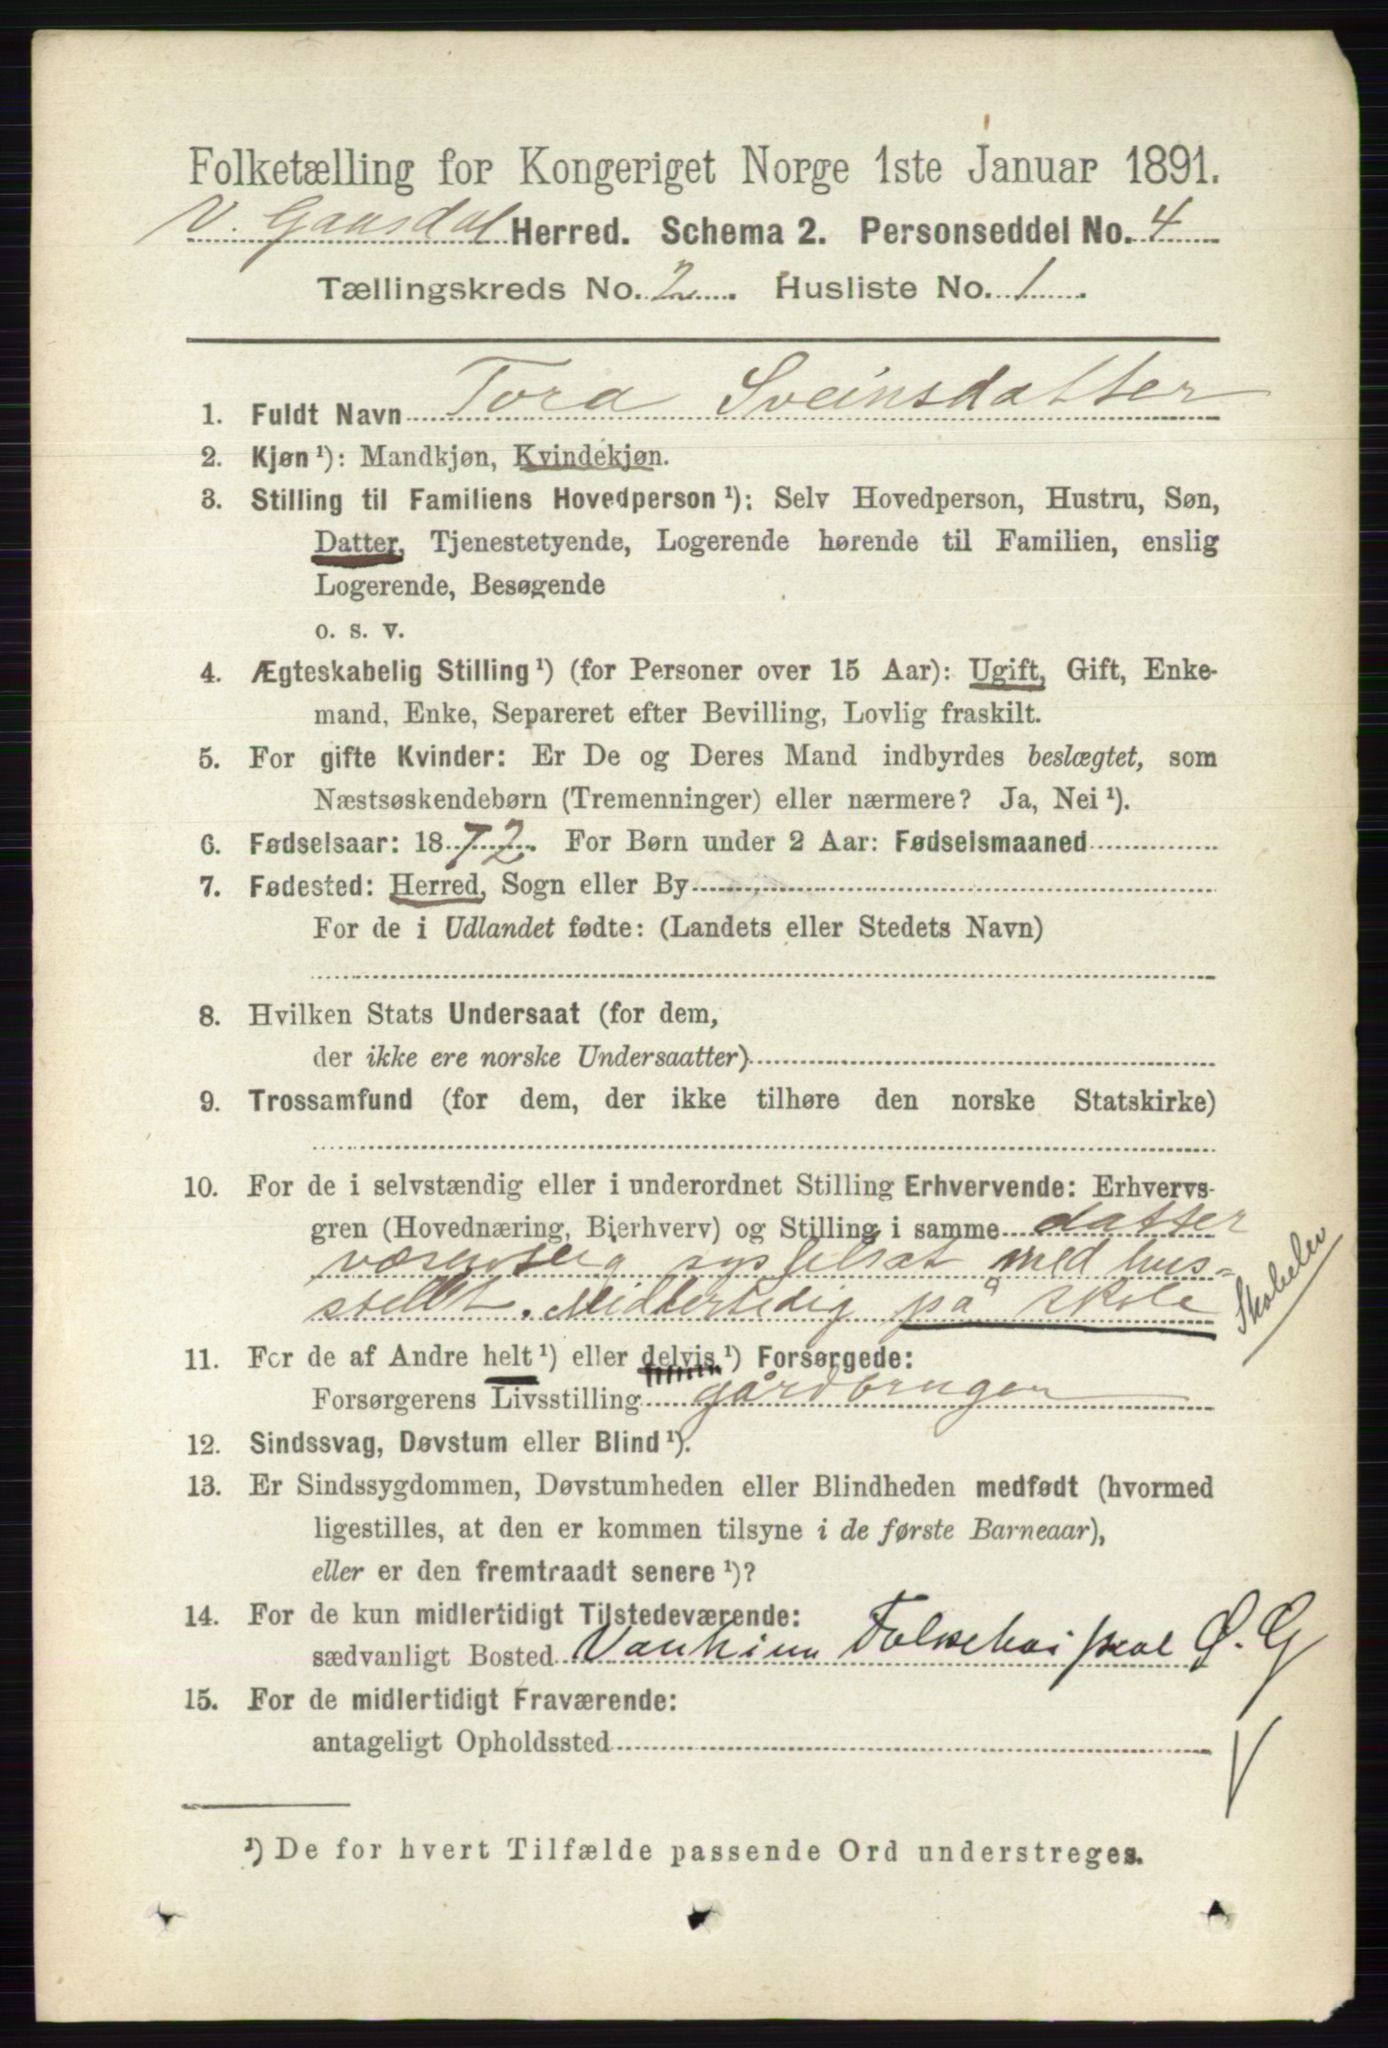 Folketælling for Kongeriget Norge 1ste Januar 1891.
V. Gausdal Herred. Schema 2. Personseddel No. 4
Tællingskreds No. 2. Husliste No. 1
1. Fuldt Navn Tora Sveinsdatter
2. Kjøn ¹): Mandkjøn, Kvindekjøn.
3. Stilling til Familiens Hovedperson ¹): Selv Hovedperson, Hustru, Søn,
Datter, Tjenestetyende, Logerende hørende til Familien, enslig
Logerende, Besøgende
o. s. v.
4. Ægteskabelig Stilling ¹) (for Personer over 15 Aar): Ugift, Gift, Enke-
mand, Enke, Separeret efter Bevilling, Lovlig fraskilt.
5. For gifte Kvinder: Er De og Deres Mand indbyrdes beslægtet, som
Næstsøskendebørn (Tremenninger) eller nærmere? Ja, Nei ¹).
6. Fødselsaar: 1872. For Børn under 2 Aar: Fødselsmaaned
7. Fødested: Herred, Sogn eller By
For de i Udlandet fødte: (Landets eller Stedets Navn)
8. Hvilken Stats Undersaat (for dem,
der ikke ere norske Undersaatter)
9. Trossamfund (for dem, der ikke tilhøre den norske Statskirke)
10. For de i selvstændig eller i underordnet Stilling Erhvervende: Erhvervs-
gren (Hovednæring, Bierhverv) og Stilling i samme datter
væsentlig sysselsat med hus-
stellet. Midlertidig på skole
Skoleelev
11. For de af Andre helt ¹) eller delvis ¹) Forsørgede:
Forsørgerens Livsstilling gårdbruger
12. Sindssvag, Døvstum eller Blind ¹).
13. Er Sindssygdommen, Døvstumheden eller Blindheden medfødt (hvormed
ligestilles, at den er kommen tilsyne i de første Barneaar),
eller er den fremtraadt senere ¹)?
14. For de kun midlertidigt Tilstedeværende:
sædvanligt Bosted Vonheim Folkehøiskole Ø. G
15. For de midlertidigt Fraværende:
antageligt Opholdssted
¹) De for hvert Tilfælde passende Ord understreges.